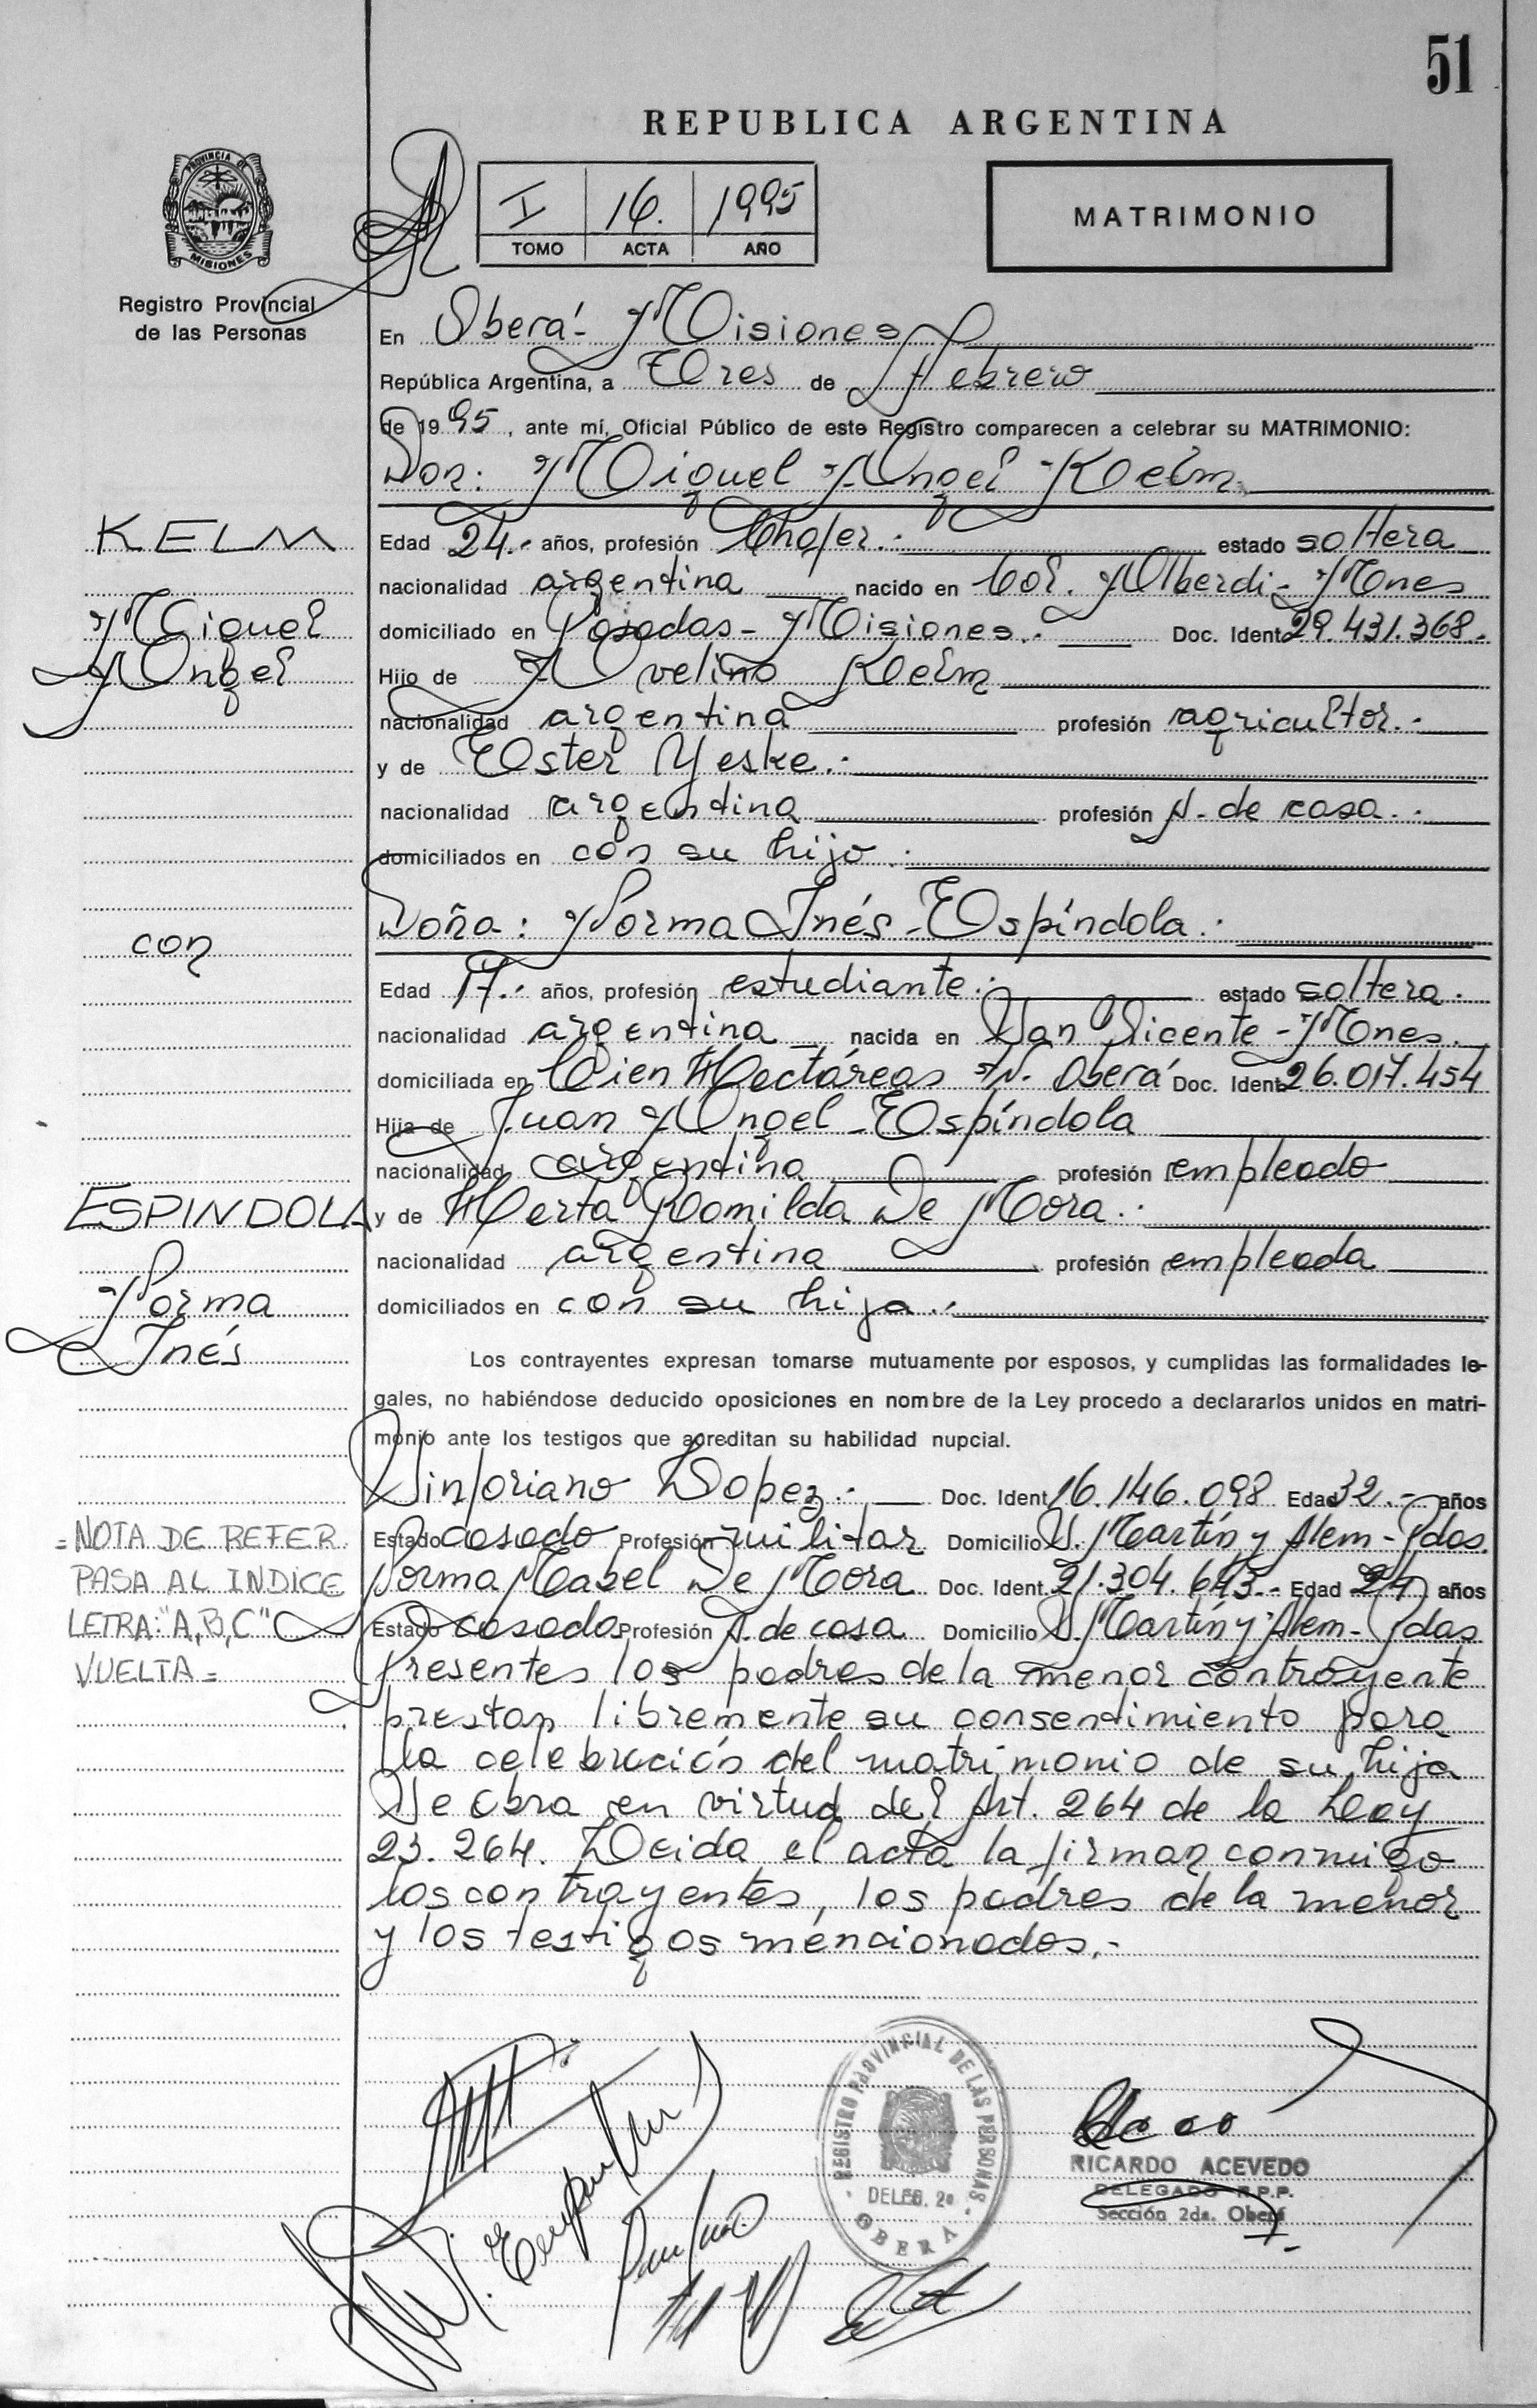 51
REPUBLICA ARGENTINA
PROVINCIA DE
MISIONES
Registro Provincial
de las Personas
I 16. 1995
TOMO ACTA AÑO
MATRIMONIO
En Oberá- Misiones
República Argentina, a Tres de Febrero
de 1995, ante mí, Oficial Público de este Registro comparecen a celebrar su MATRIMONIO:
Don: Miguel Angel Kelm
Edad 24.- años, profesión Chofer.- estado soltera
nacionalidad argentina nacido en Col. Alberdi- Mnes
domiciliado en Posadas- Misiones.- Doc. Ident. 29.431.368.-
Hijo de Avelino Kelm
nacionalidad argentina profesión agricultor.-
y de Ester Yeske.-
nacionalidad argentina profesión A. de casa.-
domiciliados en con su hijo.-
Doña: Norma Inés Espíndola.-
Edad 17.- años, profesión estudiante.- estado soltera.
nacionalidad argentina nacida en San Vicente- Mnes.
domiciliada en Cien Hectáreas N. Oberá Doc. Ident. 26.017.454
Hija de Juan Angel Espíndola
nacionalidad argentina profesión empleado
y de Herta Romilda De Mora.-
nacionalidad argentina profesión empleada
domiciliados en con su hija.-
Los contrayentes expresan tomarse mutuamente por esposos, y cumplidas las formalidades le-
gales, no habiéndose deducido oposiciones en nombre de la Ley procedo a declararlos unidos en matri-
monio ante los testigos que acreditan su habilidad nupcial.
Sinforiano Lopez.- Doc. Ident. 16.146.098 Edad 32.- años
Estado casado Profesión militar Domicilio S. Martín y Alem- Pdas.
Norma Mabel De Mora Doc. Ident. 21.304.643.- Edad 24 años
Estado casada Profesión A. de casa Domicilio S. Martín y Alem- Pdas
Presentes los padres de la menor contrayente
prestan libremente su consentimiento para
la celebración del matrimonio de su hija
Se obra en virtud del Art. 264 de la Ley
23.264. Leida el acta la firman conmigo
los contrayentes, los padres de la menor
y los testigos mencionados.-
KELM
Miguel
Angel
con
ESPINDOLA
Norma
Inés
=NOTA DE REFER.
PASA AL INDICE
LETRA:"A,B,C"
VUELTA=
REGISTRO PROVINCIAL DE LAS PERSONAS
DELEG. 2a
OBERA
RICARDO ACEVEDO
DELEGADO R.P.P.
Sección 2da. Oberá